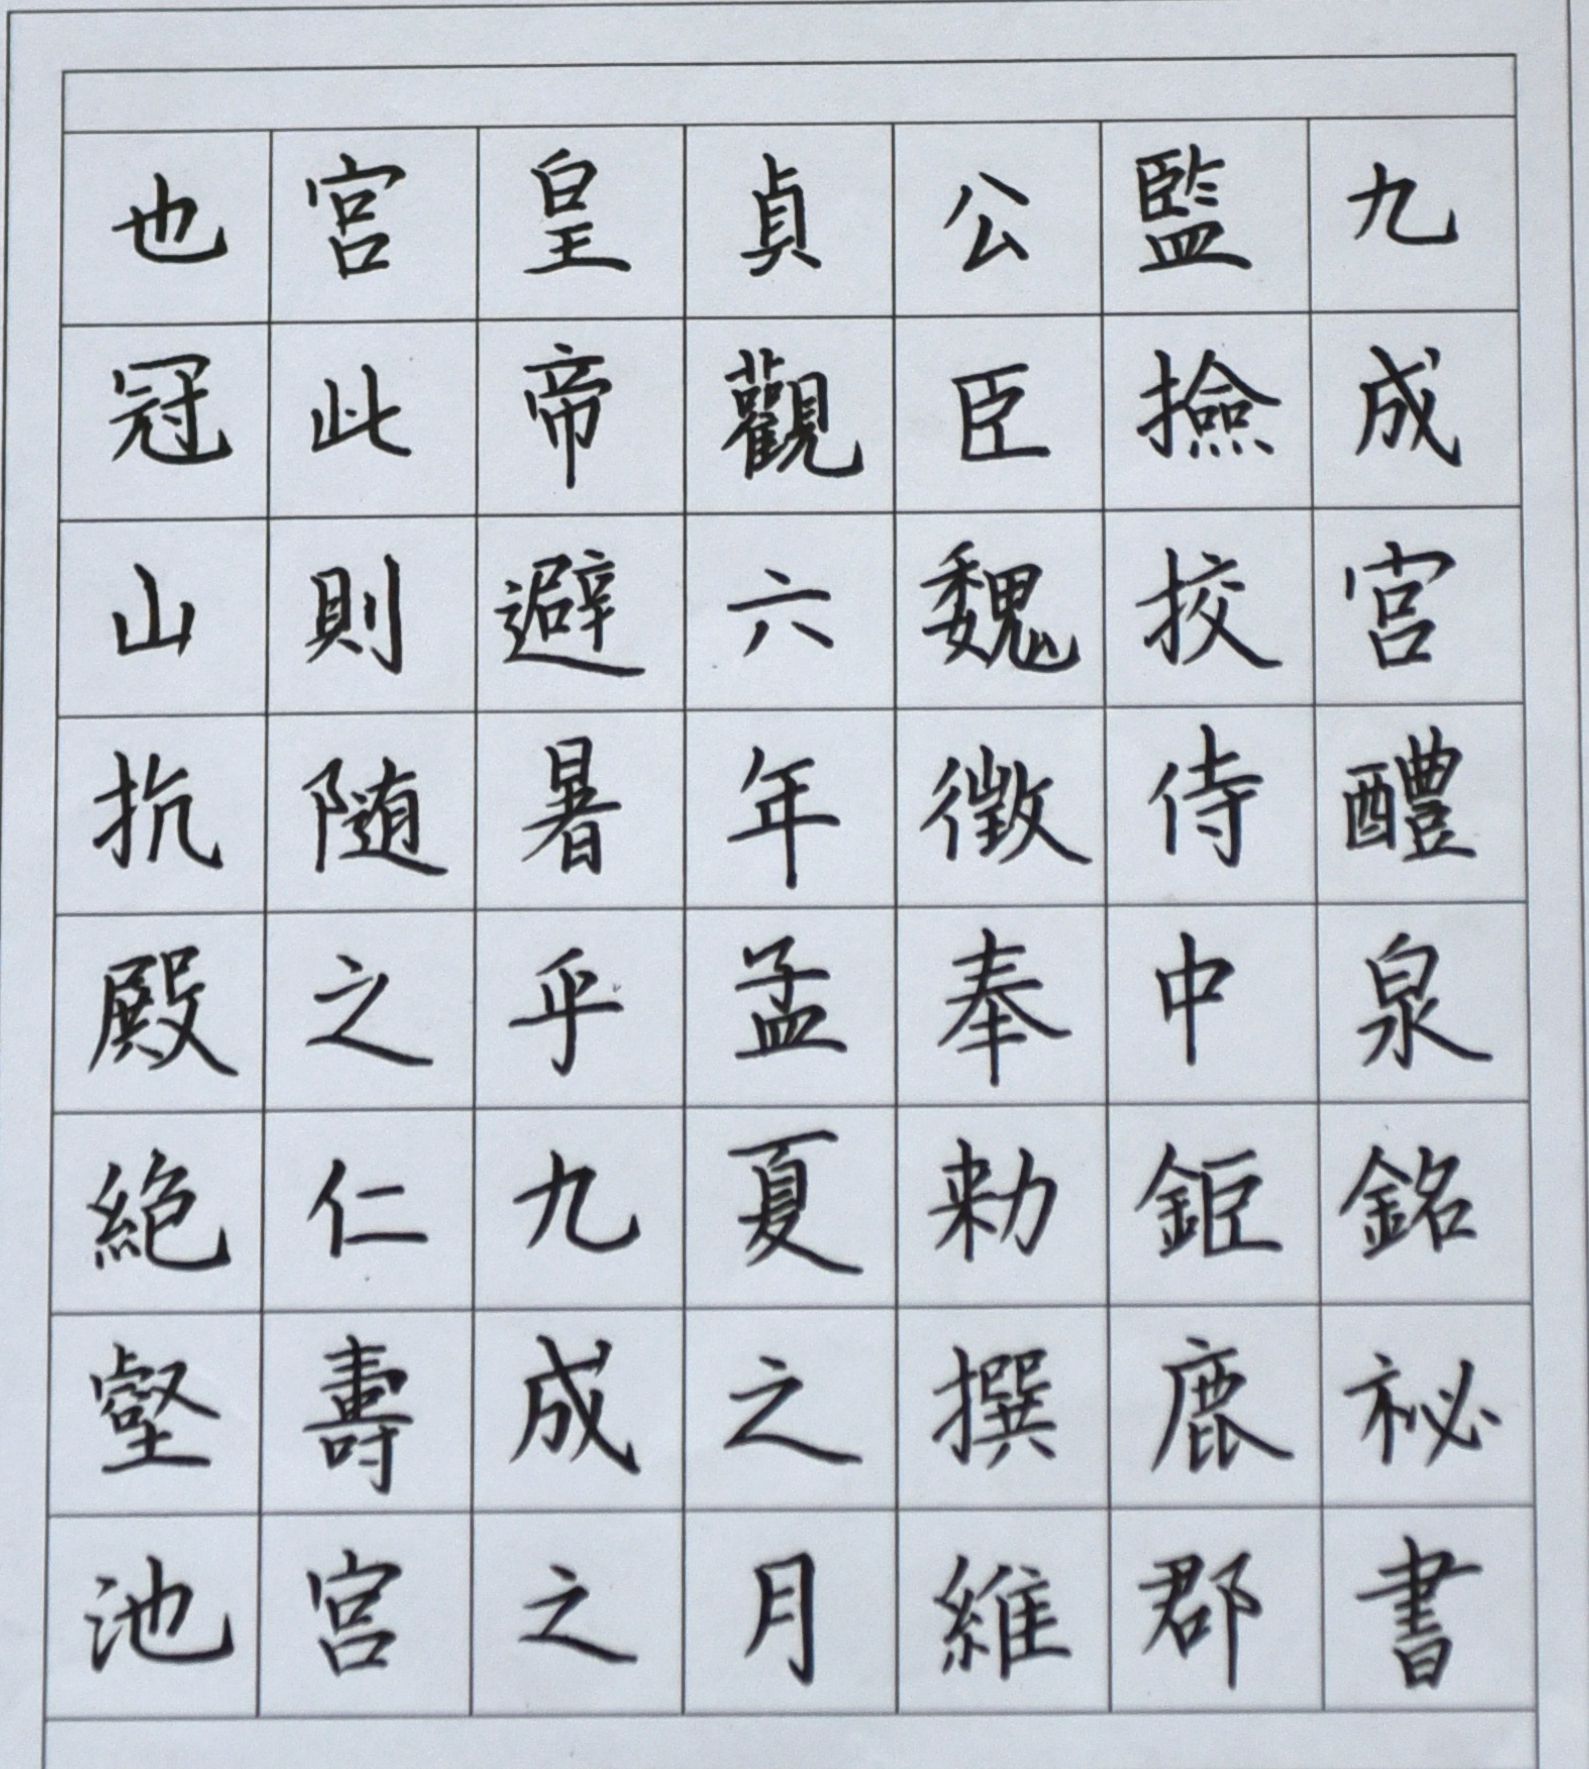 九成宫醴泉銘祕書
監撿挍侍中鉅鹿郡
公臣魏徵奉勑撰維
貞觀六年孟夏之月
皇帝避暑乎九成之
宫此則随之仁壽宫
也冠山抗殿絶壑池